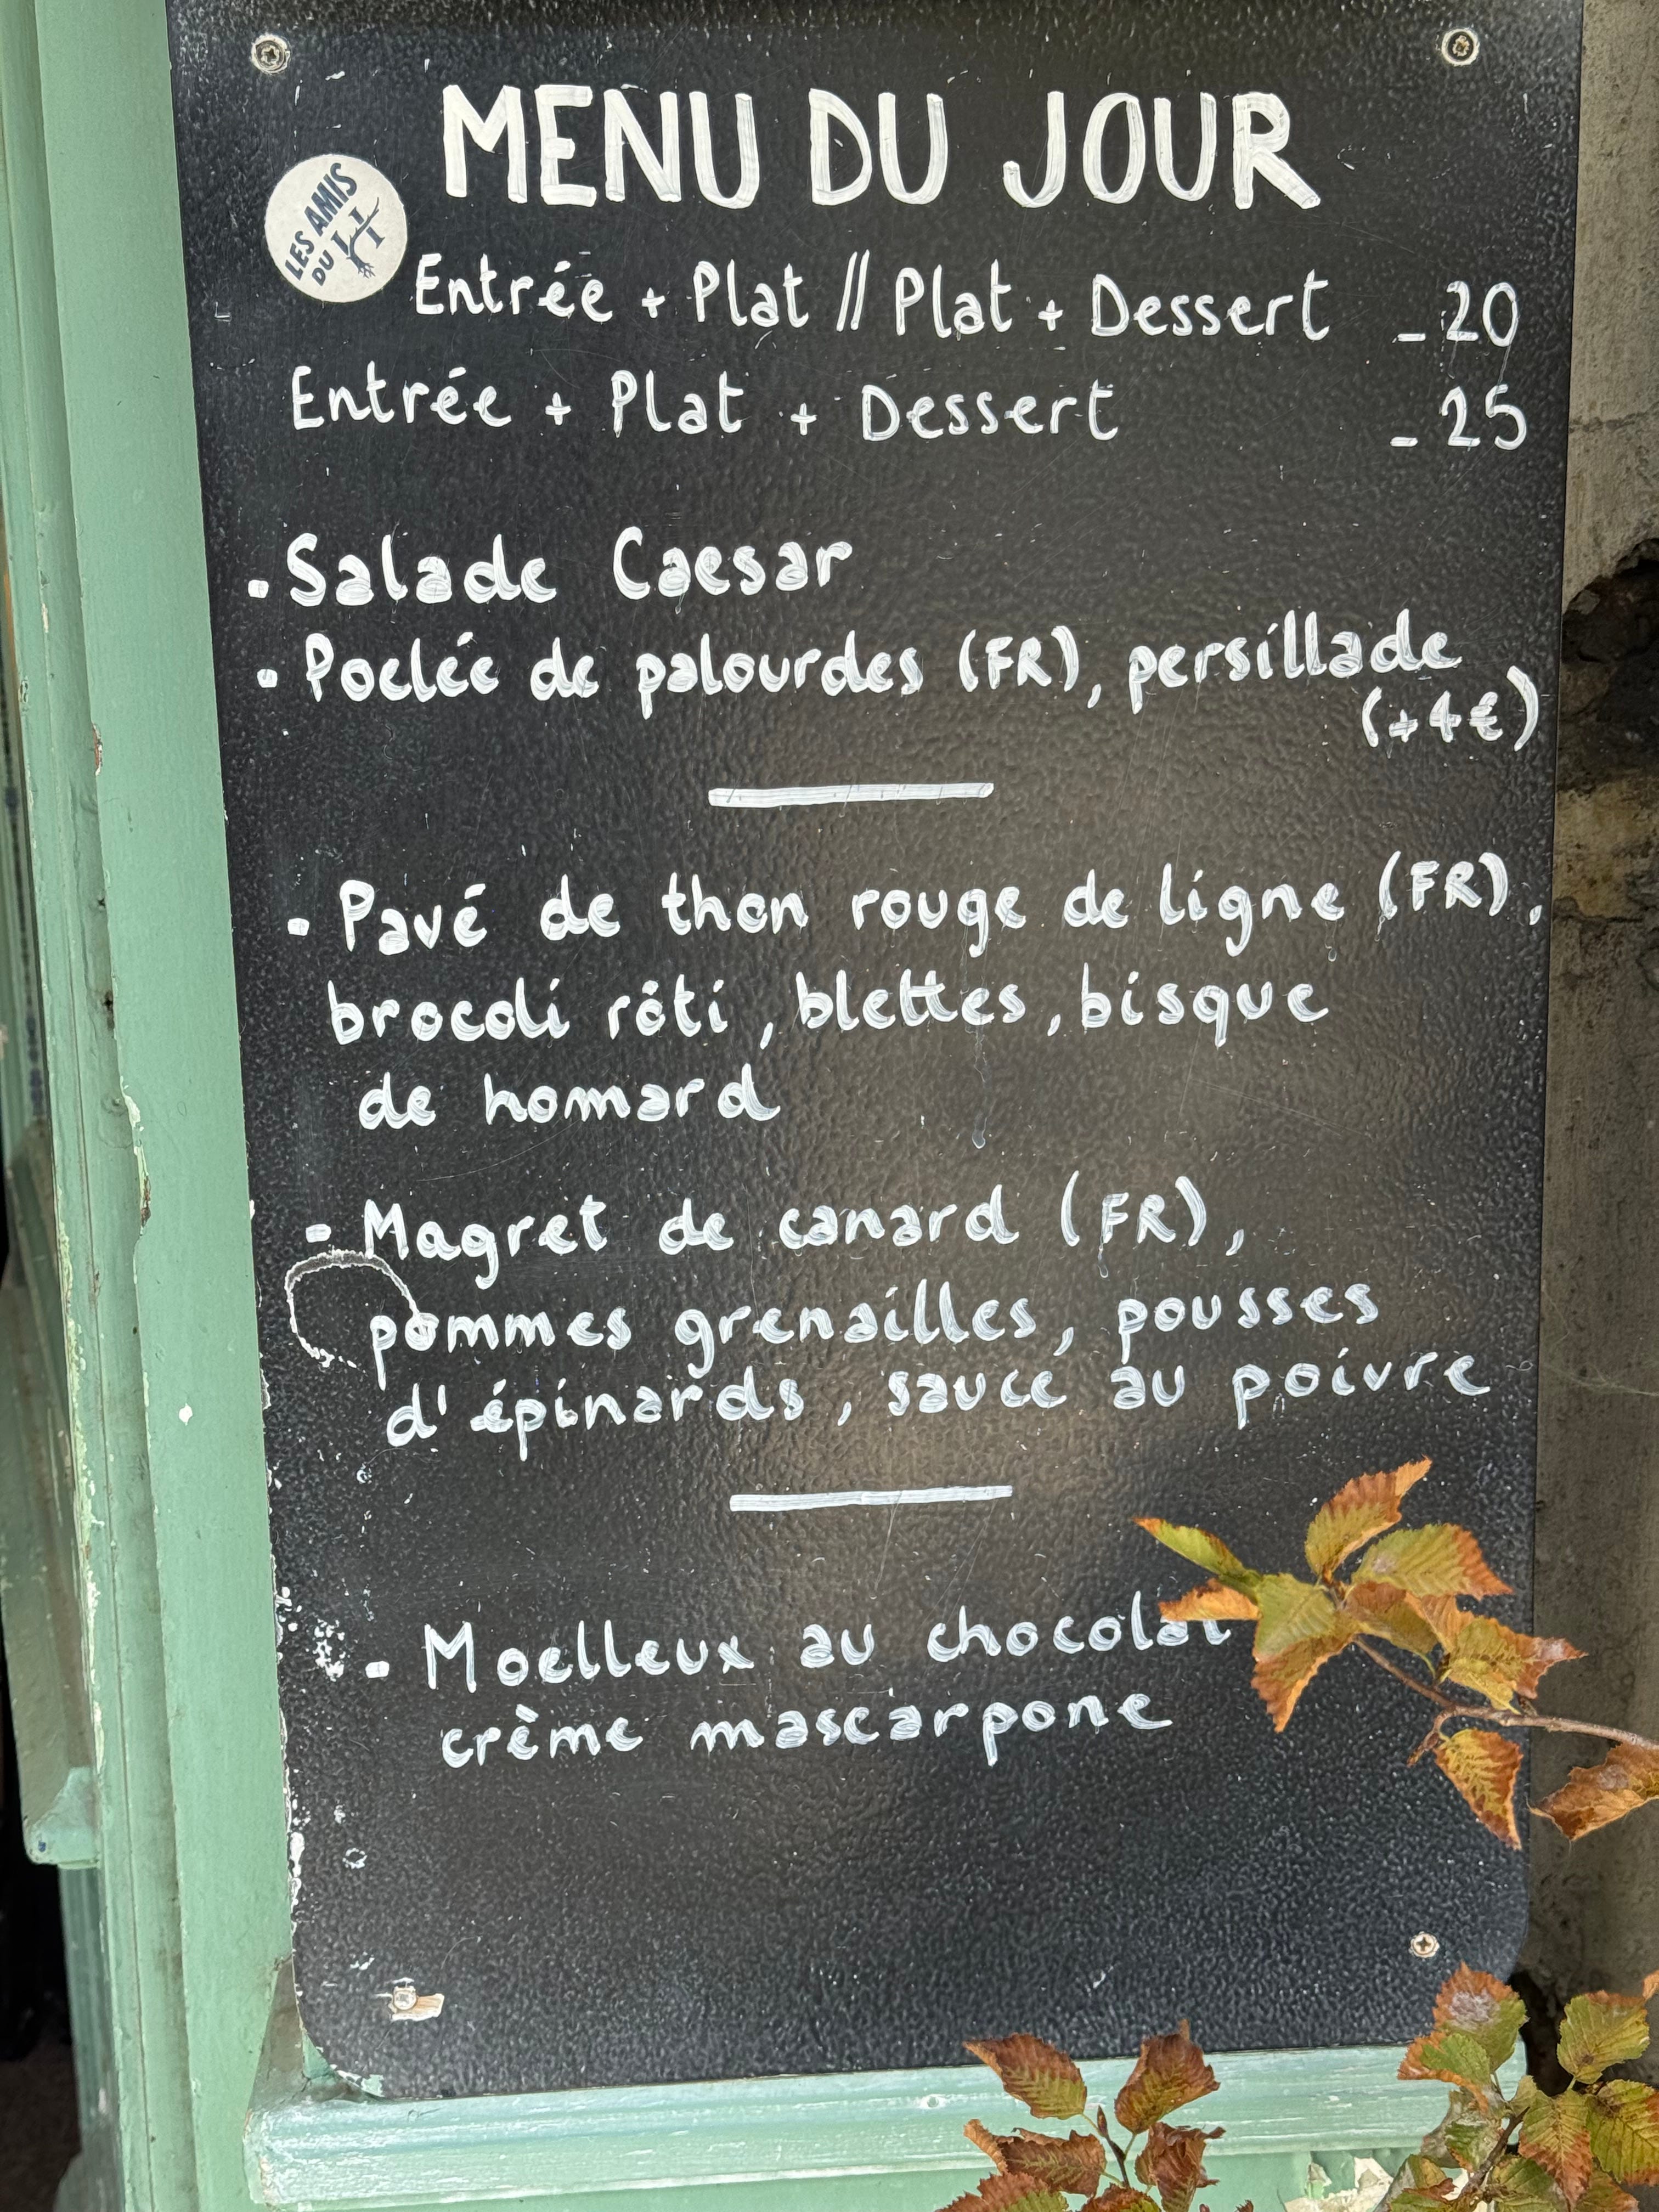 MENU DU JOUR
LES AMIS
DU
Entrée + Plat // Plat + Dessert _ 20
Entrée + Plat + Dessert _ 25
- Salade Caesar
- Poelée de palourdes (FR), persillade
(+4€)
- Pavé de thon rouge de ligne (FR),
brocoli rôti, blettes, bisque
de homard
- Magret de canard (FR),
pommes grenailles, pousses
d'épinards, sauce au poivre
- Moelleux au chocolat
crème mascarpone